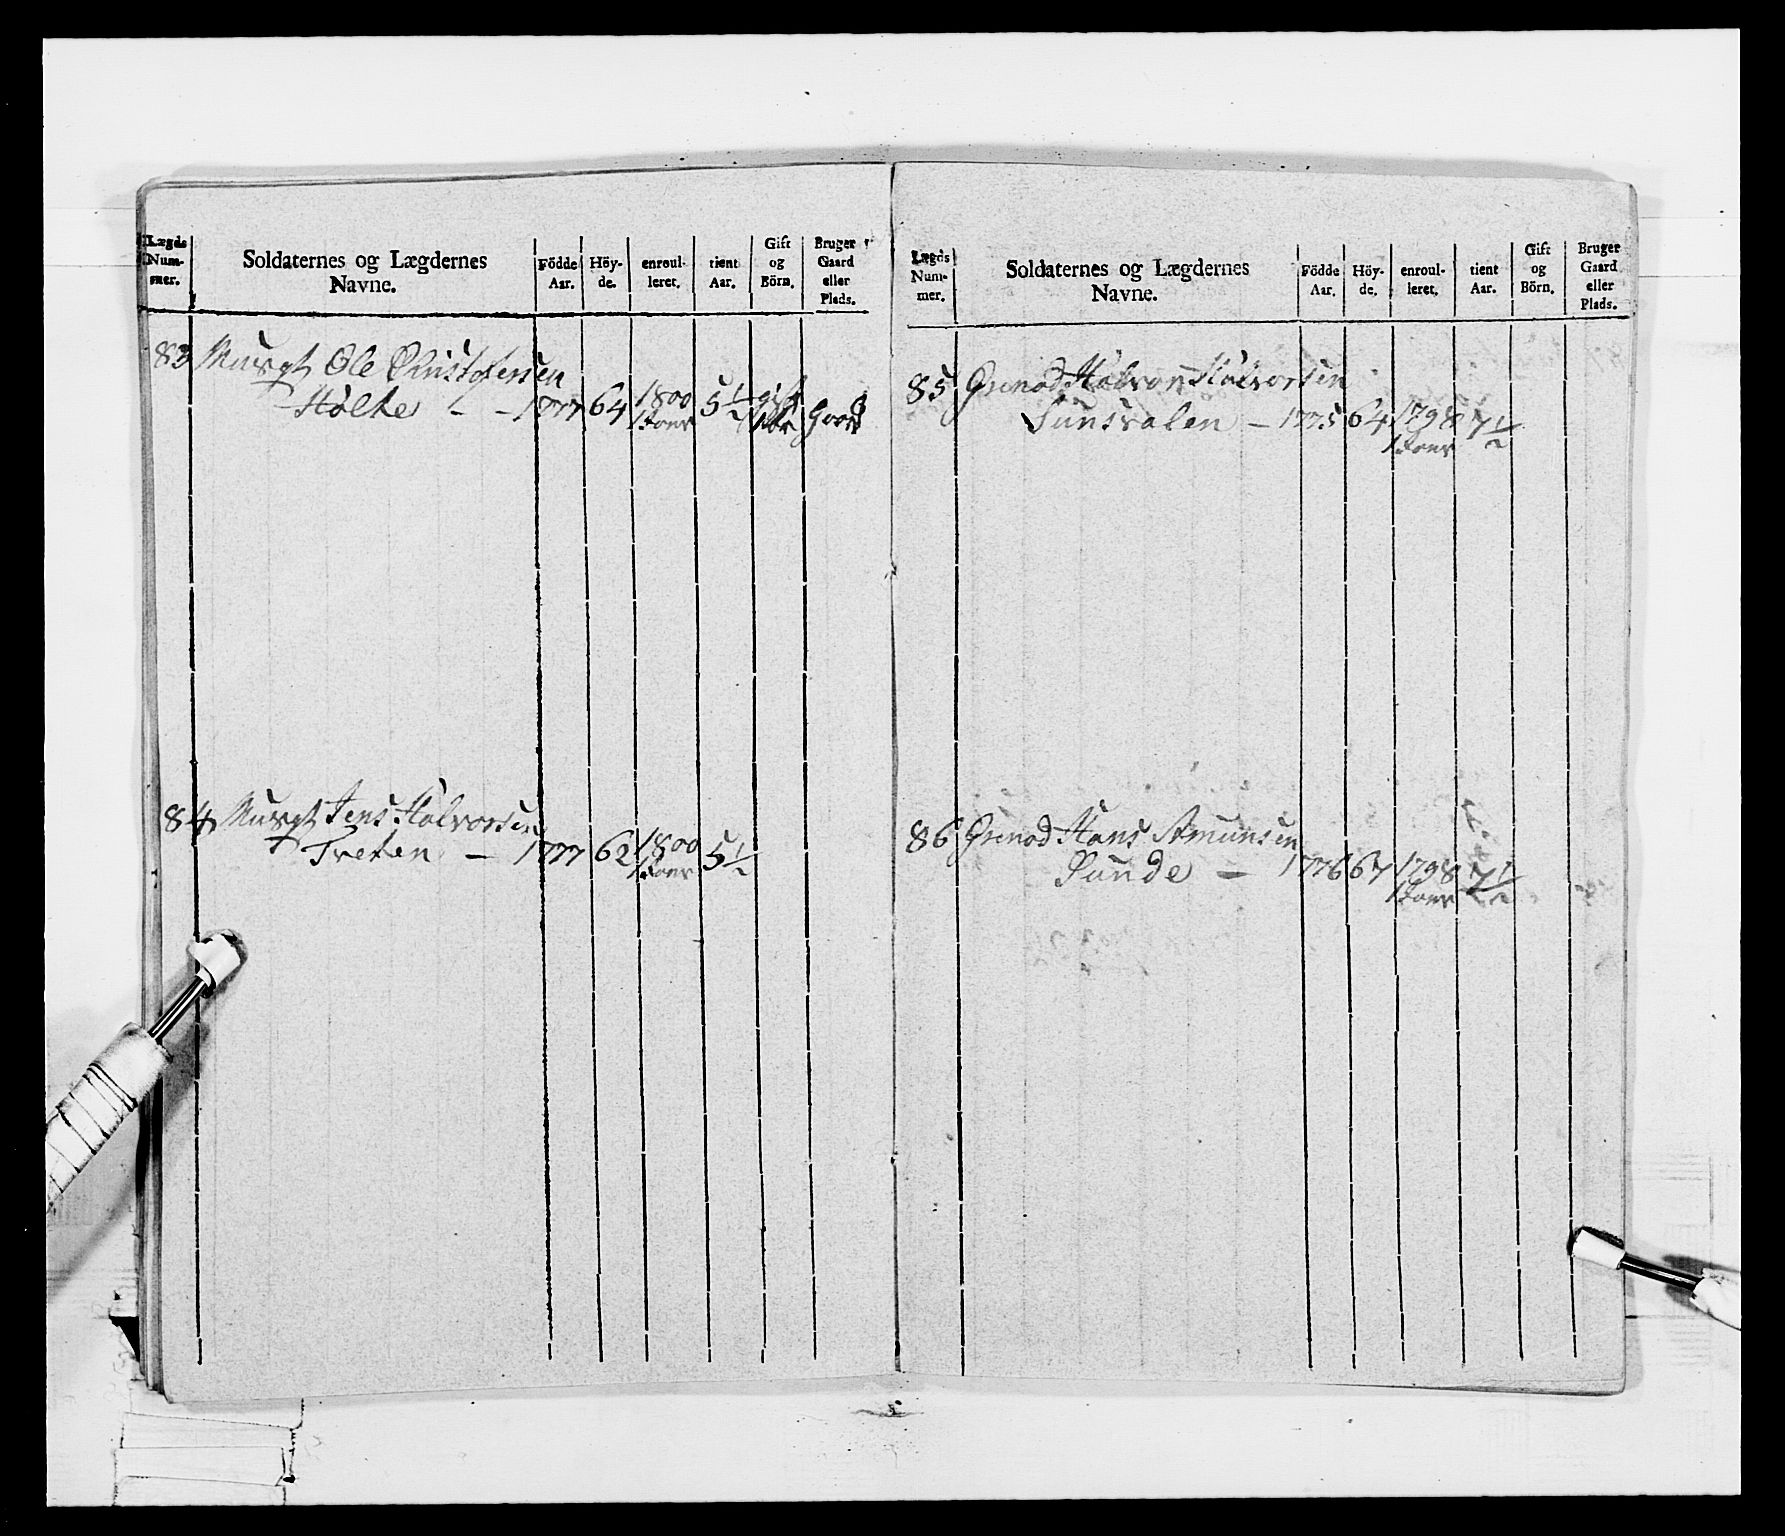 Lægds Num- mer.
Soldaternes og Lægdernes Navne.
Födde Aar.
Höy- de.
enroul- leret.
tient Aar.
Gift og Börn.
Bruger Gaard eller Plads.
83 Musqt Ole Christofersen
Holte - - 1777 64 1800 5 1/2 gift
1 Janr 1 br Gaard
84 Musqt Jens Halvorsen
Treten - 1777 62 1800 5 1/2
1 Janr
Lægds Num- mer.
Soldaternes og Lægdernes Navne.
Födde Aar.
Höy- de.
enroul- leret.
tient Aar.
Gift og Börn.
Bruger Gaard eller Plads.
85 Grenad Halvor Halvorsen
Sunsvalen - 1775 64 1798 7 1/2
1 Janr
86 Grenad Hans Amunsen
Punde - 1776 67 1798 7 1/2
1 Janr